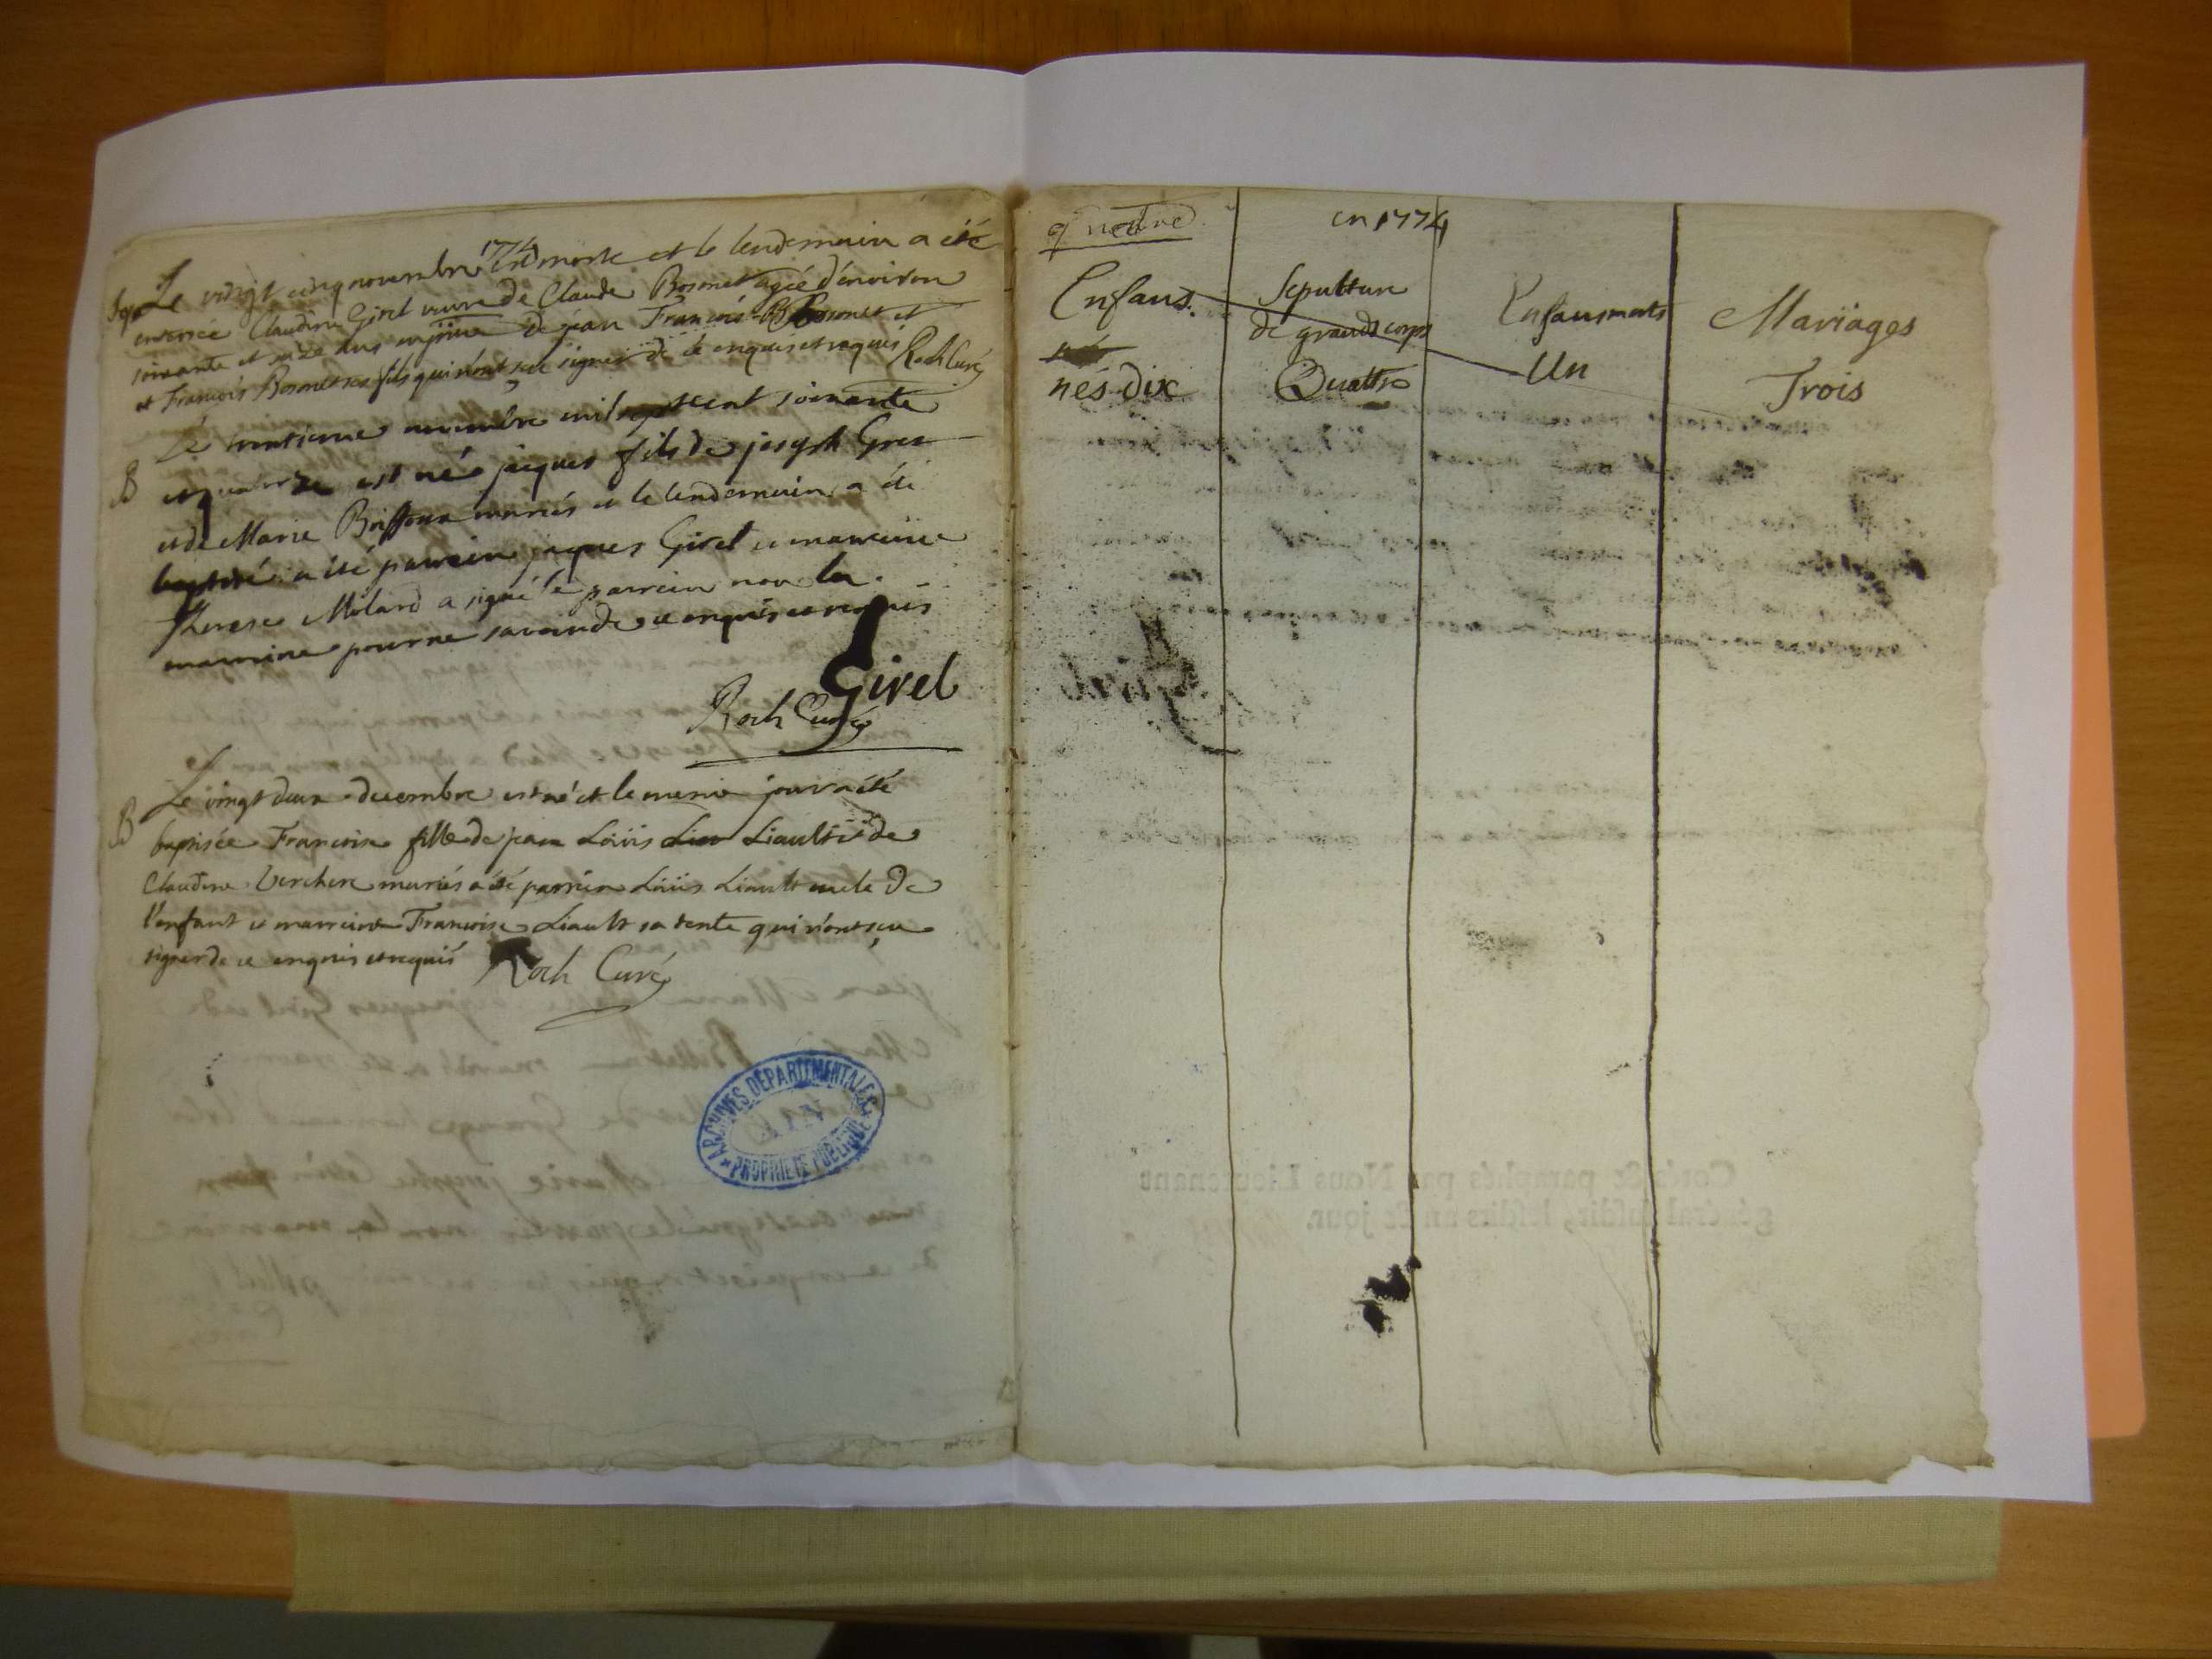 Sep Le vingt cinq novembre 1774 est morte et le lendemain a été
enterrée Claudine Girel veuve de Claude Bosonet agée d'environ
soixante et seize ans en présence de jean François Bosonet et
et François Bosonet ses fils qui n'ont sçu signer de ce enquis et requis Roch Curé
Le trentieme novembre mil sept cent soixante
B et quatorze est né jacques fils de joseph Gres
et de Marie Boiffon mariés et le lendemain a été
baptisé a été parrein jaques Girel et marreine
Therese Milard a signé le parrein non la
marreine pour ne savoir de ce enquis et requis
Girel
Roch Curé
Le vingt deux decembre est né et le meme jour a été
B baptisée Francoise fille de jean Loüis Liault et de
Claudine Verchere mariés a été parrein Loüis Liault oncle de
l'enfant et marreine Francoise Liault sa tente qui n'ont sçu
signer de ce enquis et requis Roch Curé
ARCHIVES DEPARTEMENTALES
AIN
PROPRIETE PUBLIQUE
quatre
en 1774
Enfans
nés dix
Sepulture
de grands corps
Quattre
Enfans morts
Un
Mariages
Trois